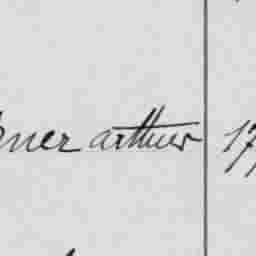 ner arthur 17